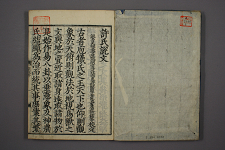 許氏說文
古者庖犧氏之王天下也仰則觀
象於天俯則觀法於地視鳥獸之
文與地之宜近取諸身遠取諸物於
是始作易八卦以垂憲象及神農
氏結繩爲治而統其事庶業其繁